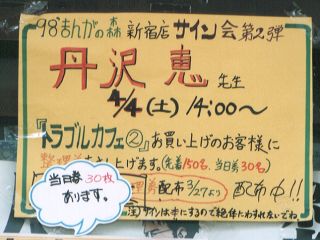 98まんがの森 新宿店 サイン会 第2弾
丹沢 恵 先生
4/4(土) 14:00〜
『トラブルカフェ②』お買い上げのお客様に
整理券をさし上げます。(先着150名、当日券30名)
配布3/27より 配布中!!
当日券30枚
あります。
サインは本にするので絶体にわすれないでね